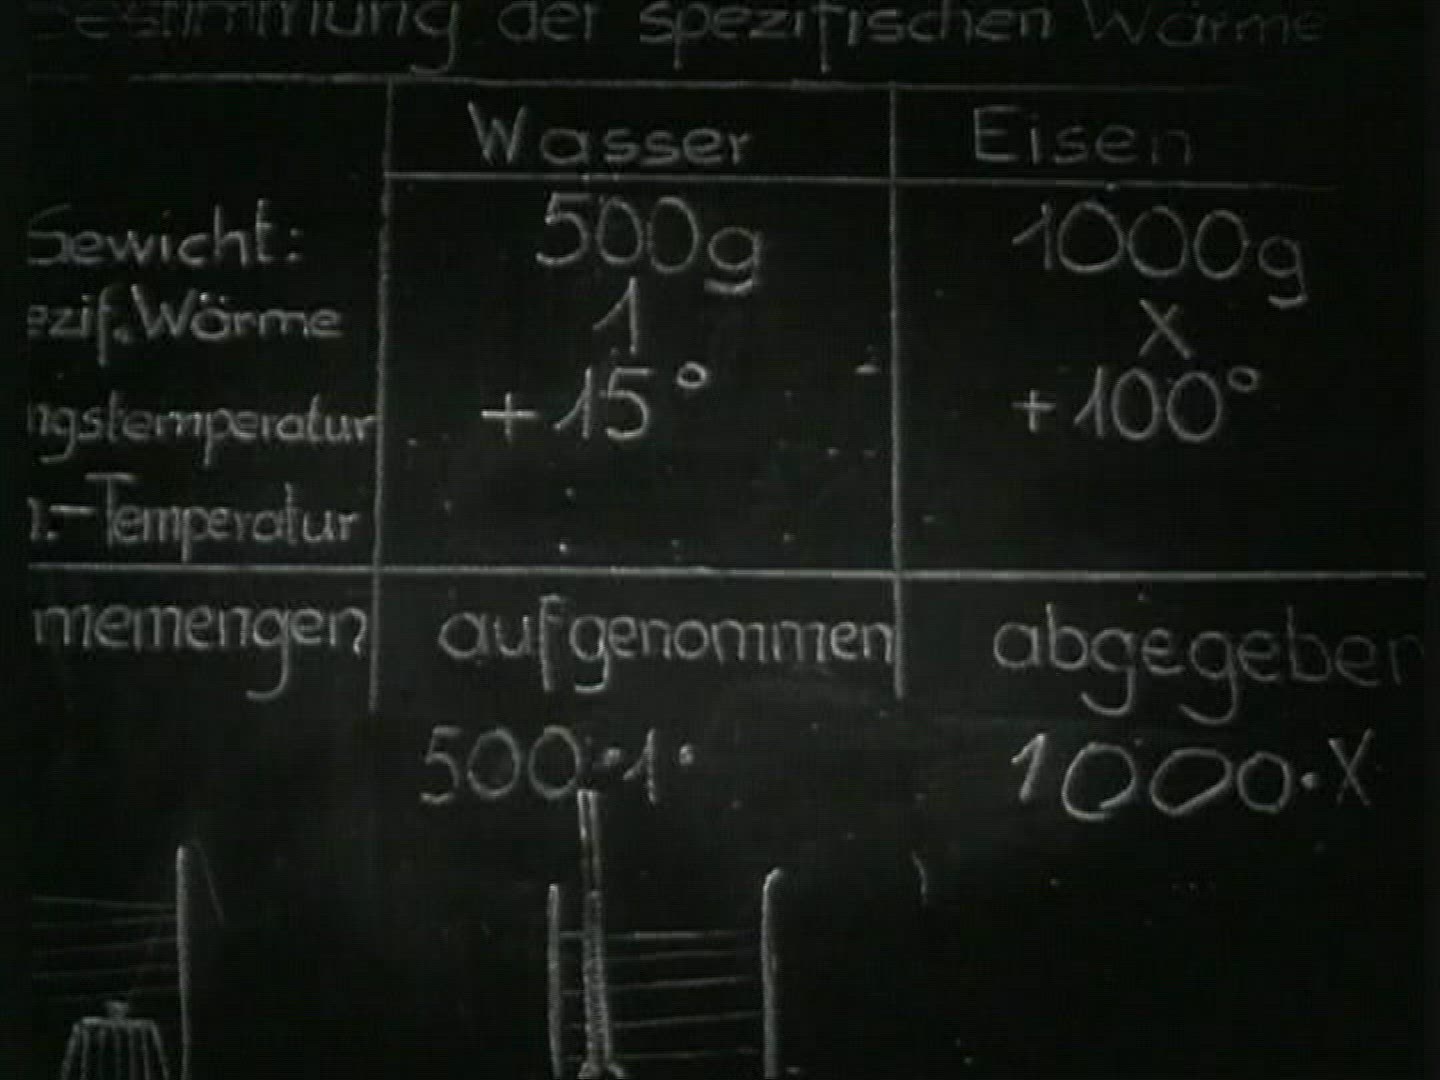 Bestimmung der spezifischen Wärme
Wasser Eisen
Gewicht: 500g 1000g
ezif. Wärme 1 X
ngstemperatur +15° +100°
.-Temperatur
memengen aufgenommen abgegeben
500·1· 1000·X